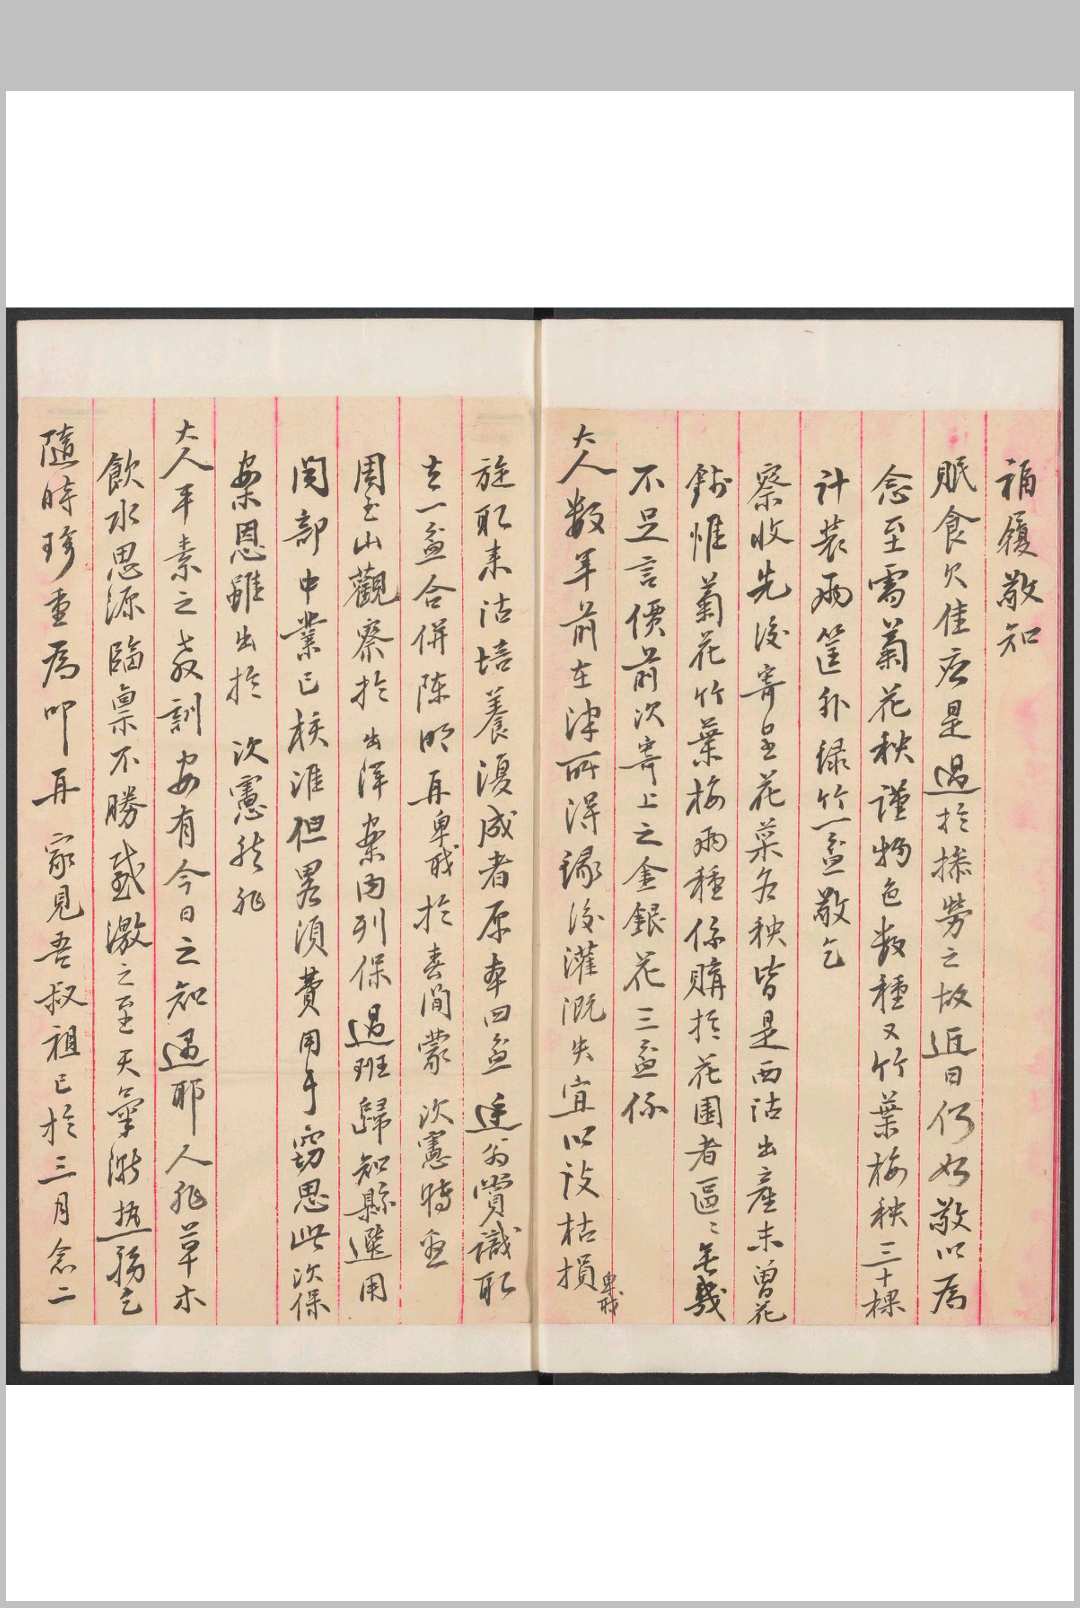 福履敬知
眠食欠佳應是過於操勞之故近日何如敬以為
念至需菊花秧謹物色數種又竹葉梅秧三十棵
計裝兩筐外綠竹一盆敬乞
察收先後寄呈花菜各秧皆是西沽出產未曾花
錢惟菊花竹葉梅兩種係購於花園者區區無幾
不足言價前次寄上之金銀花三盆係
大人數年前在津所得嗣後灌溉失宜以致枯損卑職
旋取來沽培養復成者原本四盆 賞識取
去一盆合併陳明再卑職於春間蒙 次憲特委
周玉山觀察於出洋案內列保過班歸知縣選用
閱部中業已核准但畧須費用耳竊思此次保
案恩雖出於 次憲然非
大人平素之教訓安有今日之知遇耶人非草木
飲水思源臨稟不勝感激之至天氣漸熱務乞
隨時珍重為叩再 家見吾叔祖已於三月念二